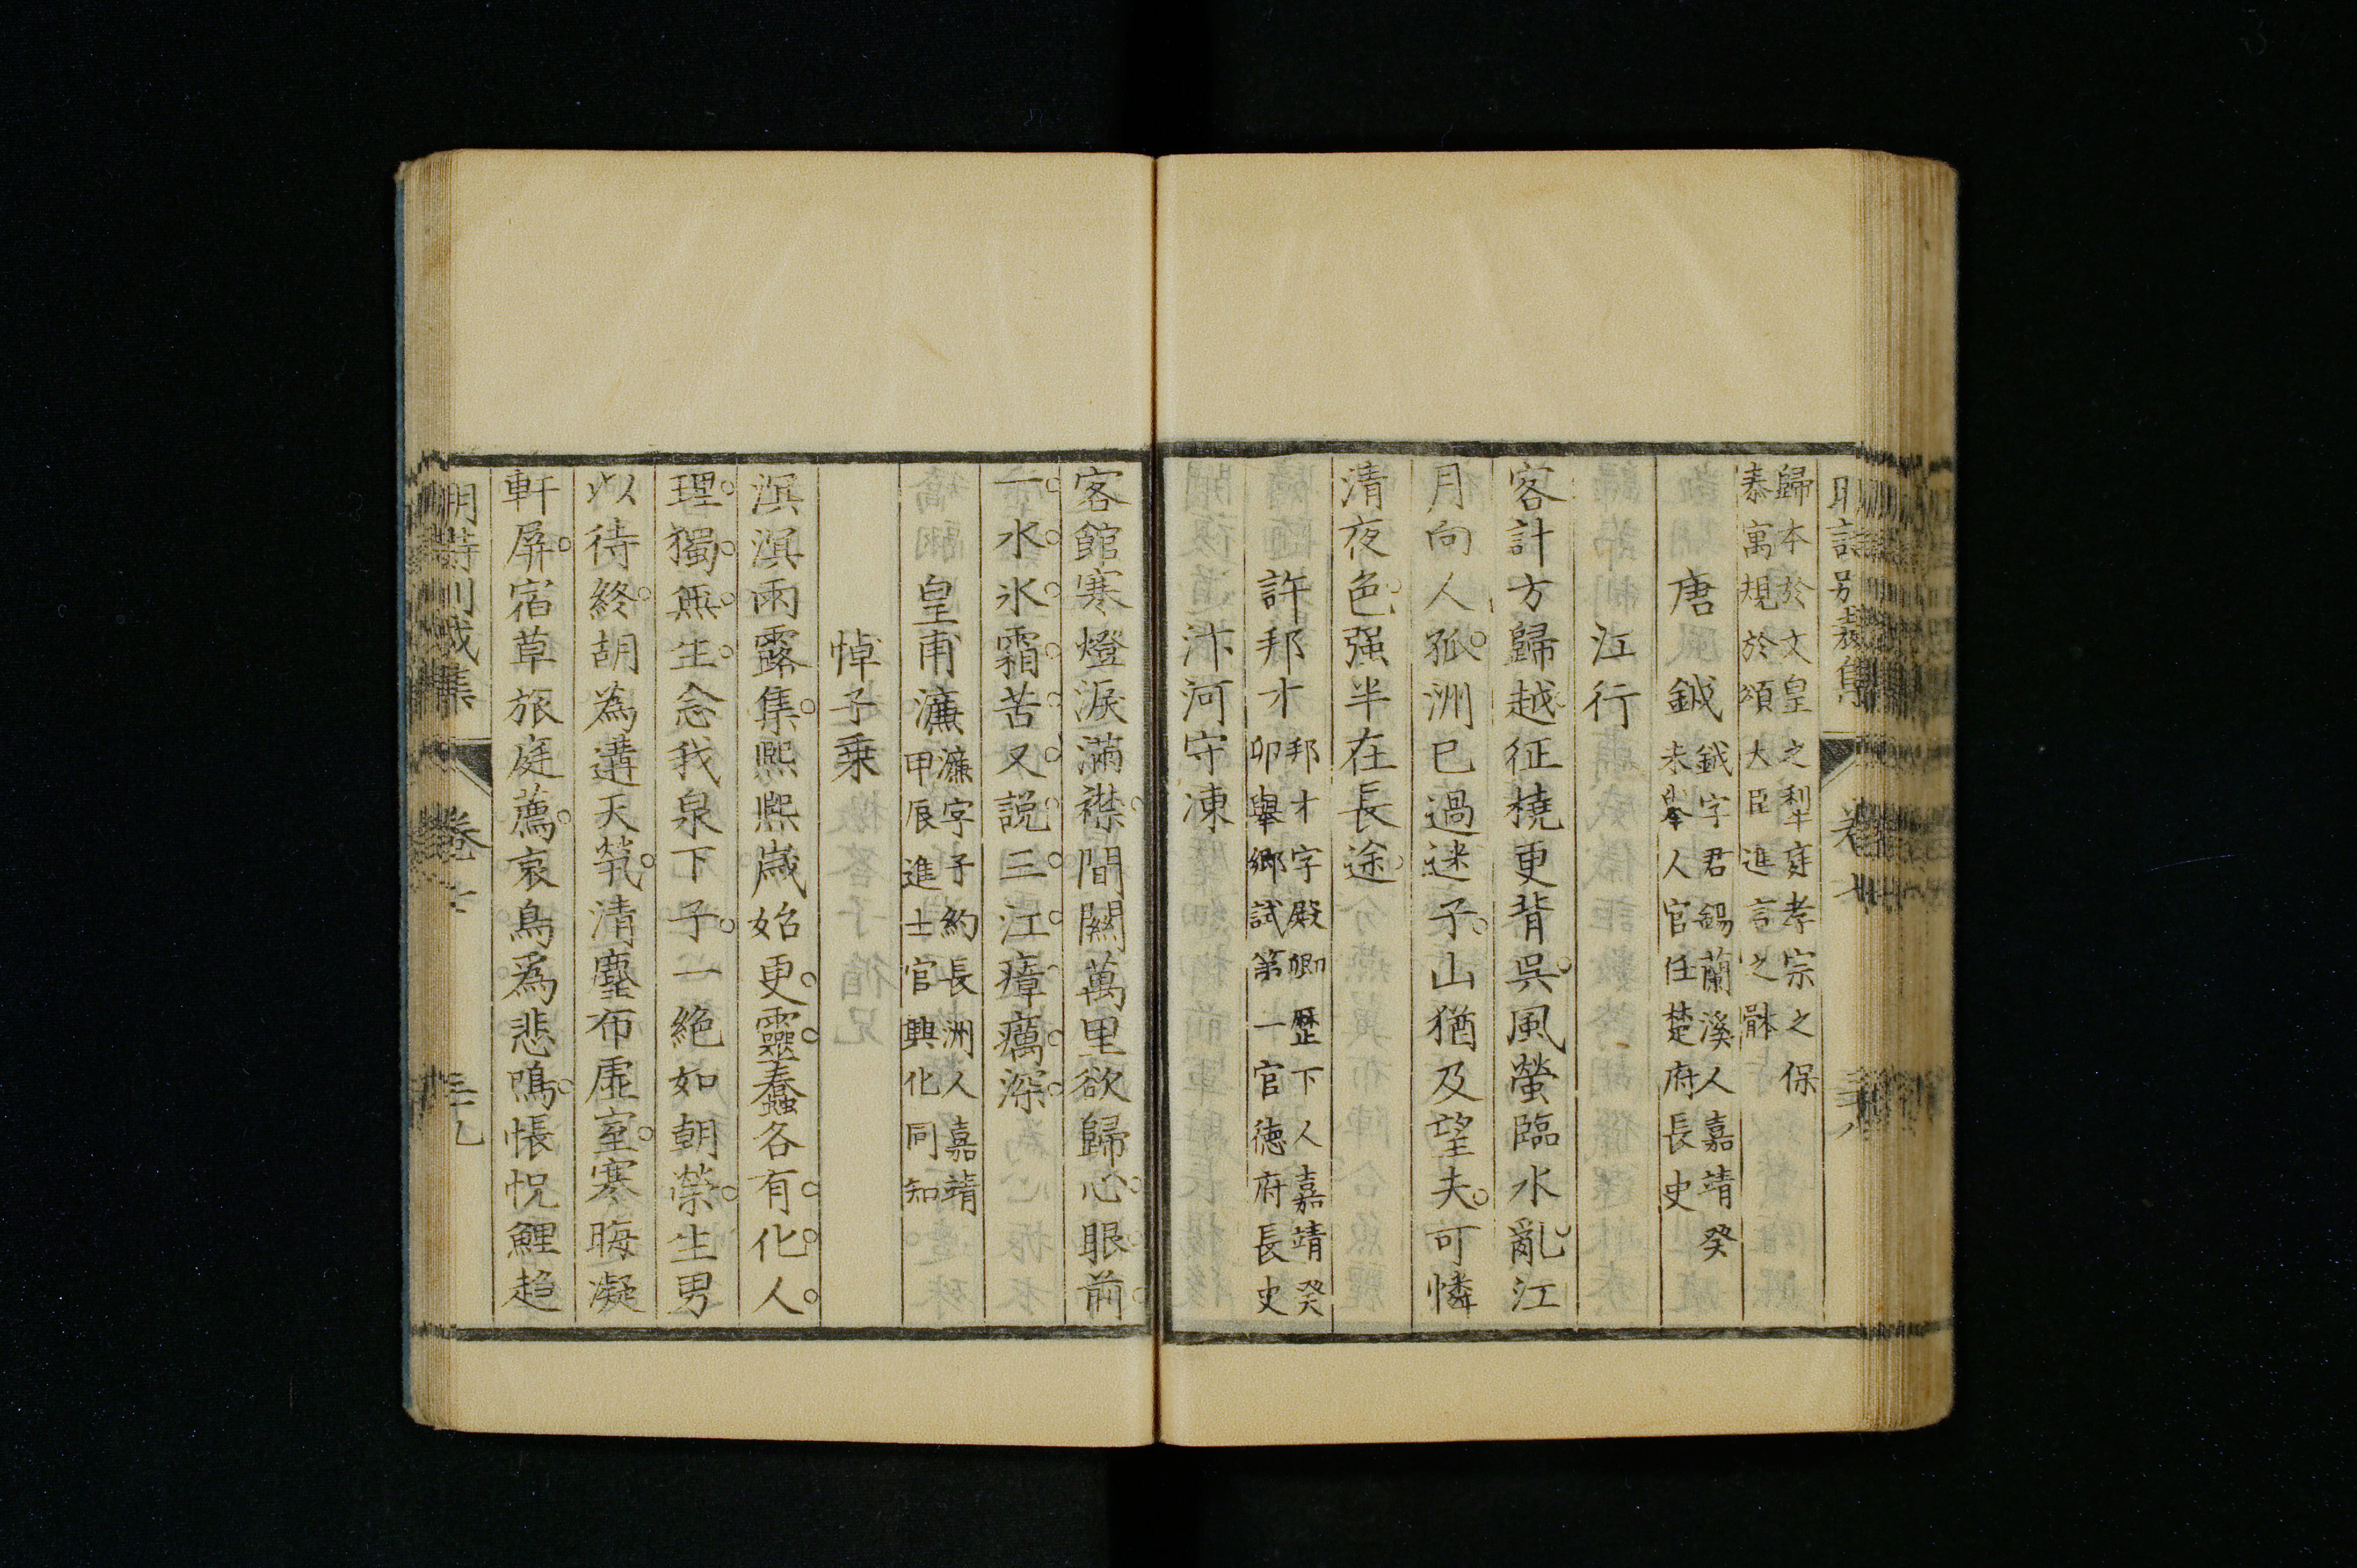 歸本於文皇之犁庭孝宗之保
泰寓規於頌大臣進言之體
唐鉞 鉞字君錫蘭溪人嘉靖癸
未舉人官任楚府長史
江行
客計方歸越征橈更背吳風螢臨水亂江
月向人孤洲已過迷子山猶及望夫可憐
清夜色强半在長途
許邦才 邦才字殿卿歷下人嘉靖癸
卯舉鄉試第一官德府長史
汴河守凍
客館寒燈淚滿襟間關萬里欲歸心眼前
一水氷霜苦又說三江瘴癘深
皇甫濂 濂字子約長洲人嘉靖
甲辰進士官興化同知
悼子乗
溟溟雨露集熙熙歲始更靈蠢各有化人
理獨無生念我泉下子一絕如朝榮生男
以待終胡為遘天煢清塵布虛室寒晦凝
軒屏宿草旅庭薦哀鳥爲悲鳴悵怳鯉趋
明詩別裁集 卷七